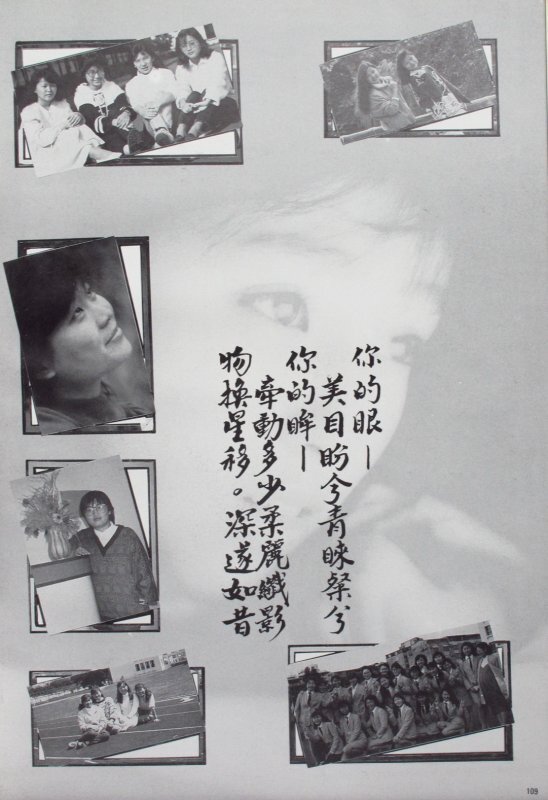 你的眼－
美目盼兮青睞粲兮
你的眸－
牽動多少柔麗纖影
物換星移。深邃如昔
109